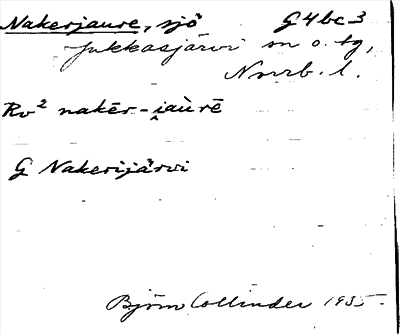 Nakerjaure, sjö G4bc3
Jukkasjärvi sn o. tg,
Norrb. l.
Rv² nakēr-i̯aùrē
G Nakerijärvi
Björn Collinder 1935.